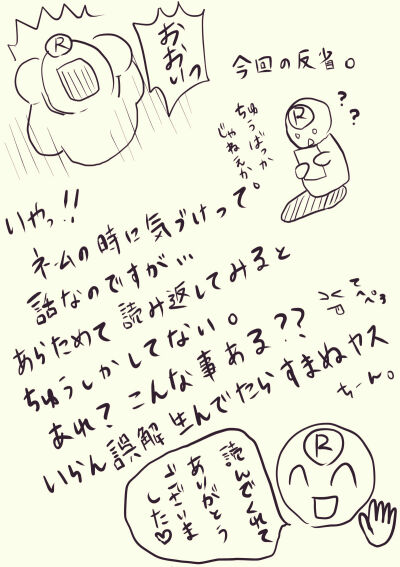 R
おおいっ
今回の反省。
R
??
ちゅうばっか
じゃねえか
いやっ!!
ネームの時に気づけって。
話なのですが…
あらためて読み返してみると
ちゅうしかしてない。
てへぺろ
あれ?こんな事ある??
いらん誤解生んでたらすまぬヤス
ちーん。
R
読んでくれて
ありがとう
ございま
した♡